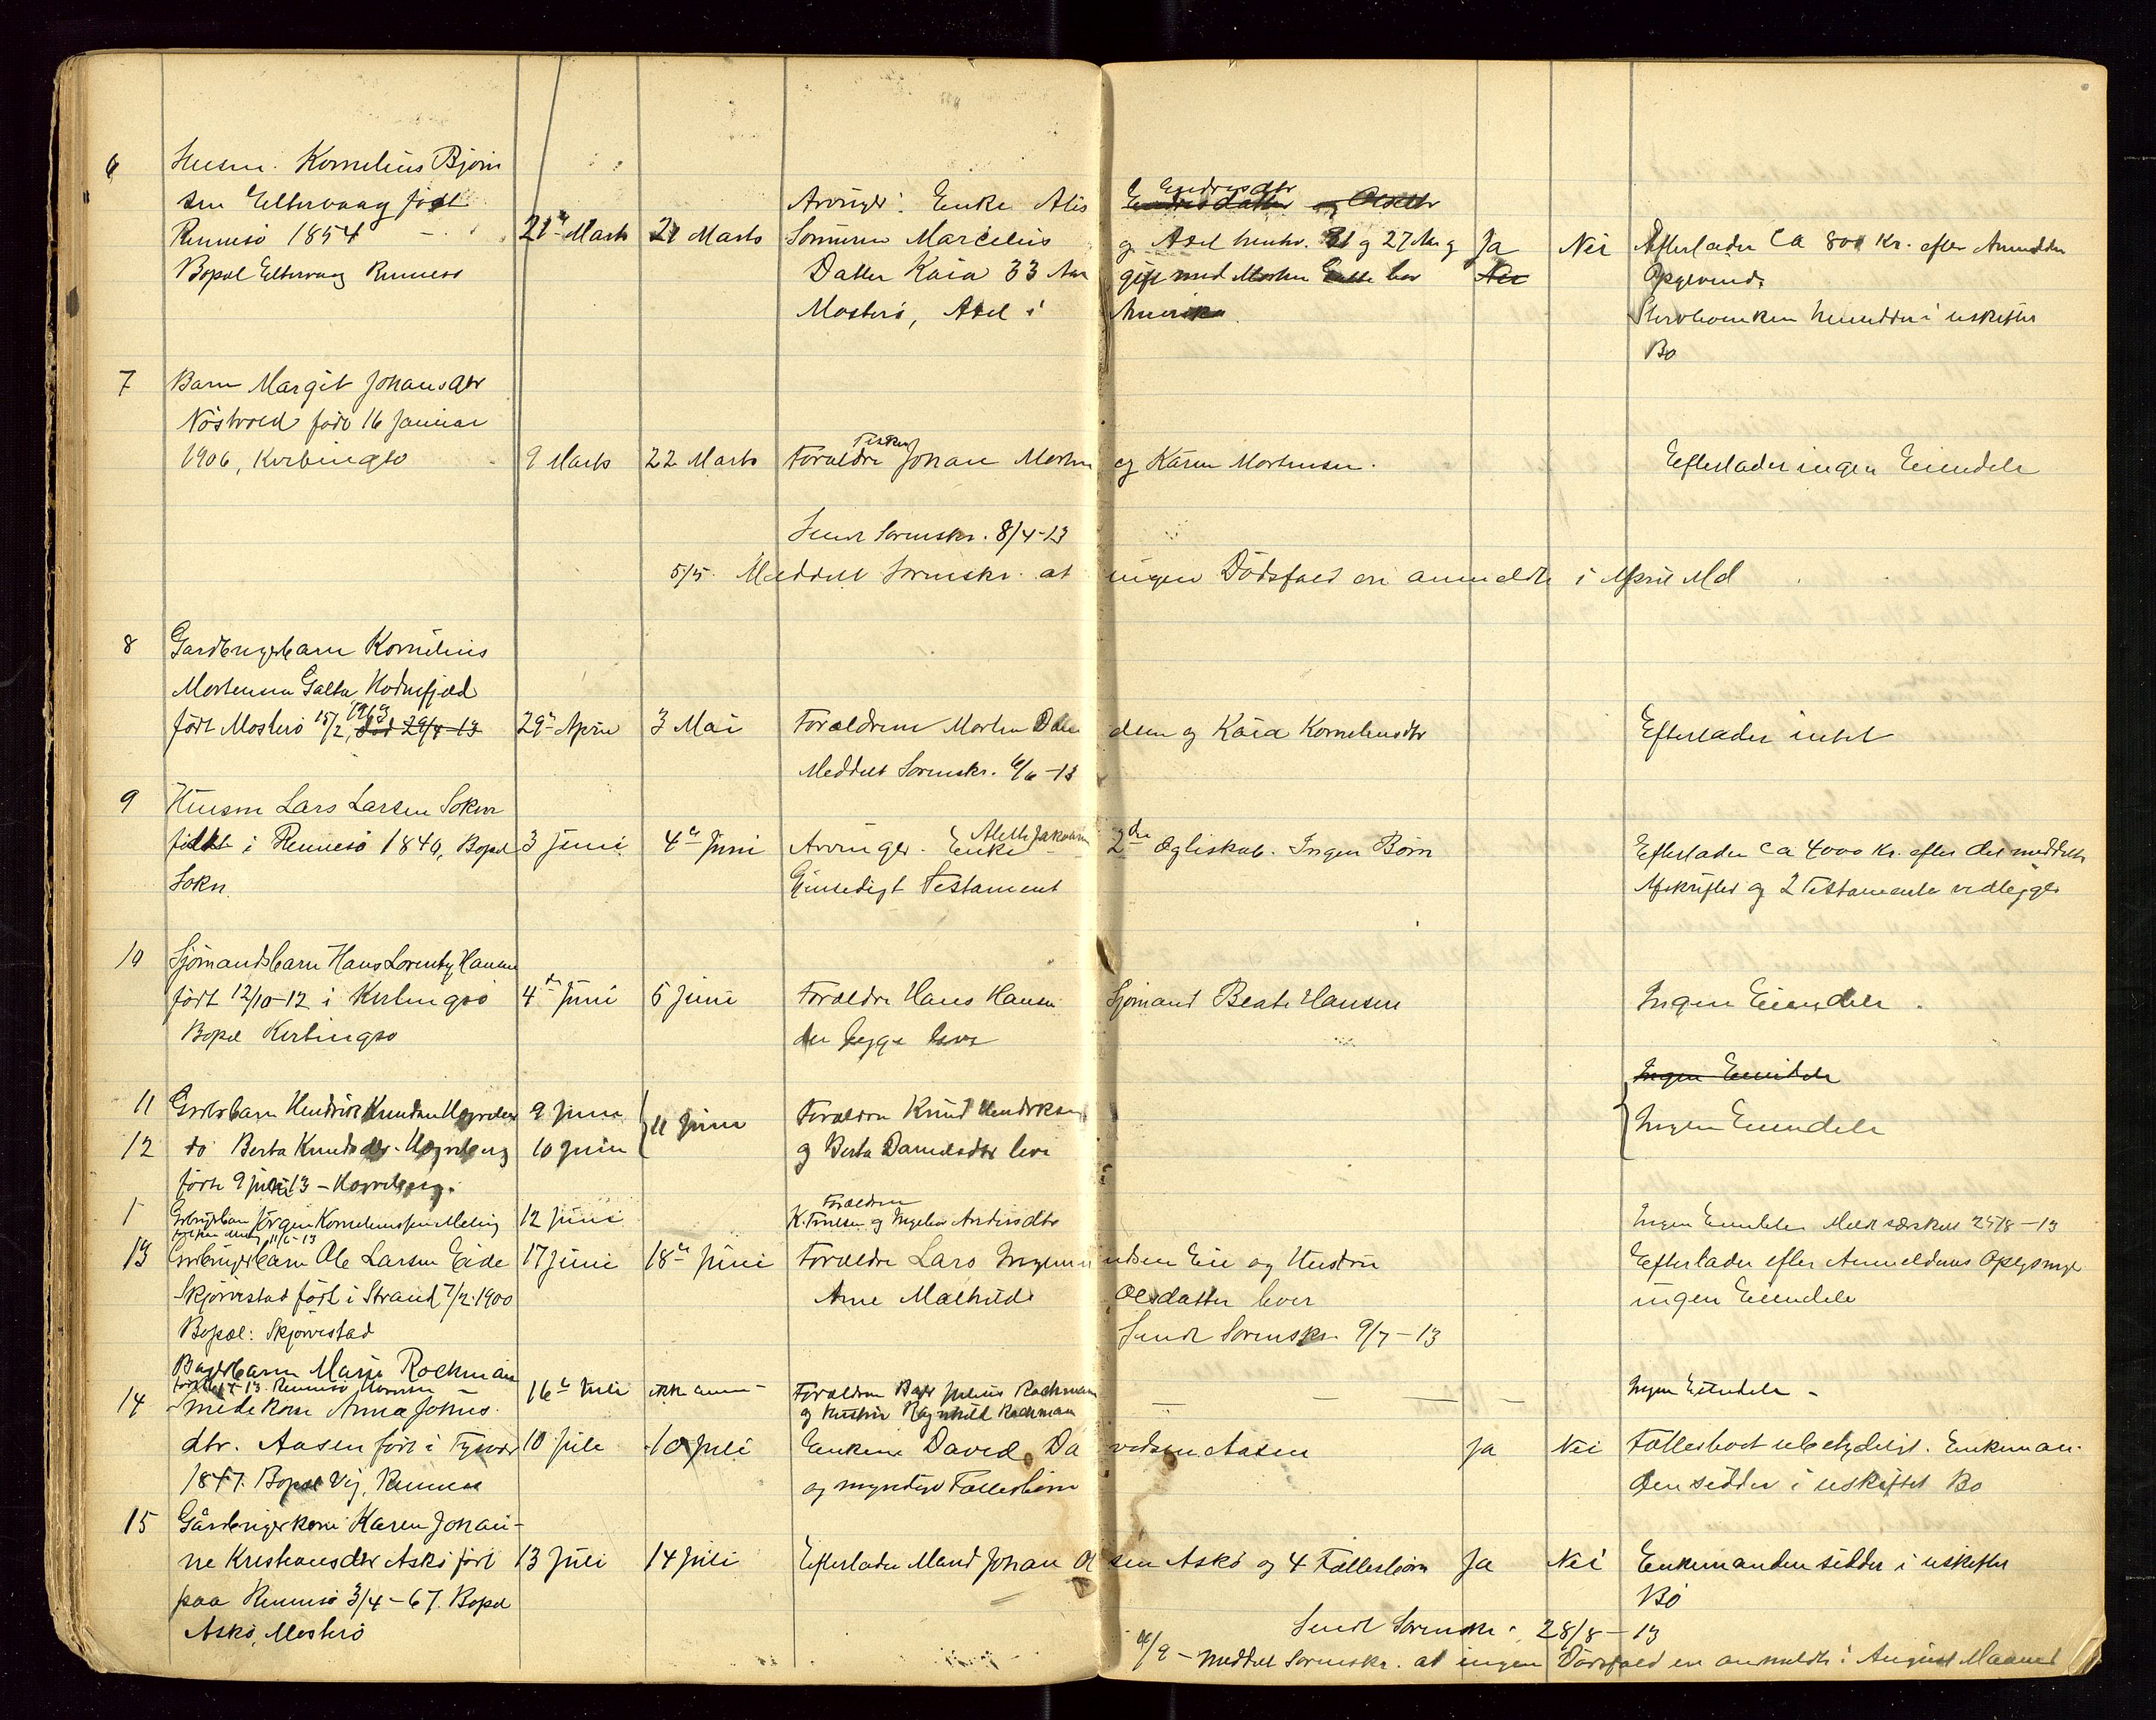 6 Husm. Kornelius Bjørn
sen Eltervaag født
Rennesø 1854
Bopæl Eltervaag Rennesø
21de Marts 21 Marts
Arvinger: Enke Alis Endresdtr
Sønnerne Marcelius og Axel henhv. 31 og 27 Aar og
Datter Kaia 33 Aar gift med Morten Galta bor
Mosterø, Axel i Amerika
Ja Nei
Nei
Efterlader Ca 800 Kr. efter Anmelder
Opgivende
i uskiftet
Bo
7 Barn Margit Johansdtr
Nøstvold født 16 Januar
1906, Kverlingsø
9 Marts 22 Marts
Fisker
Forældre Johan Morten og Karen Mortensen.
Efterlader ingen Eiendele
Sendt Sorenskr. 8/4-13
5/5. Meddelt Sorenskr. at ingen Dødsfald er anmeldt i April Md
8 Gardbrugerbarn Kornelius
Mortensen Galta Hodnefjeld
født Mosterø 15/2 1913, død 29/4 13
29de April 3 Mai
Forældrene Morten og Kaia Korneliusdtr
Efterlader intet
Meddelt Sorenskr. 6/6-13
9 Husm Lars Larsen Sokn
født i Rennesø 1840, Bopæl
Sokn
3 Juni 4de Juni
Arvinger. Enke Aleth Jakobsen 2det Ægteskab. Ingen Børn
Gjensidigt Testament
Efterlader Ca 4000 Kr. efter det meddelte
Afskrifter og 2 Testamente vedlegges
10 Sjømandsbarn Hans Lorentz Hansen
født 12/10-12 i Kverlingsø
Bopæl Kverlingsø
4de Juni 5 Juni
Forældre Hans Hansen Sjømand Beate Hansen
der begge lever
Ingen Eiendele.
Ingen Eiendele
11 Grdbrbarn Hendrik Knudsen
9 Juni
12 do Berta Knudsdtr.
10 Juni
født 9 Juni 13 -
11 Juni
Forældre Knud Hendriksen
og Berta Danielsdtr lever
Ingen Eiendele
1 Grdbrugerbarn Jørgen Korneliussen Meling
11/6-13
12 Juni
Forældrene
K. og Ingebor Andersdtr
Ingen Eiendele Meldt særskilt 25/8-13
13 Grdbrugerbarn Ole Larsen Eide
Skjørvestad født i Strand 7/2-1900
Bopæl: Skjørvestad
17 Juni 18de Juni
Forældre Lars Ingemundsen Eie og Hustru
Ane Mathilde Olsdatter lever
Efterlader efter Anmelderens Opgivende
ingen Eiendele
Sendt Sorenskr. 9/7-13
Bagerbarn Marie Rockmann
16de Juli
Forældrene Bager Julius Rockmann
og Hustru Ragnhild Rockmann
Ingen Eiendele -
14 Anna Johns.
dtr. Aasen født i Tysvær
1847. Bopæl Vig, Rennesø
10 Juli 10 Juli
Enkem David Davidsen Aasen
og myndige Fællesbørn
Ja Nei
Fællesboet ubetydeligt. Enkeman-
den sidder i uskiftet Bo
15 Gårdbrugerkone Karen Johan-
ne Kristiansdtr Askø født
paa Rennesø 3/4-67. Bopæl
Askø, Mosterø
13 Juli 14 Juli
Efterlader Mand Johan Olsen Askø og 4 Fællesbørn
Ja Nei
Enkemanden sidder i uskiftet
Bo
Sendt Sorenskr. 28/8-13
/9 - Meddelt Sorenskr. at ingen Dødsfald er anmeldt i August Maaned